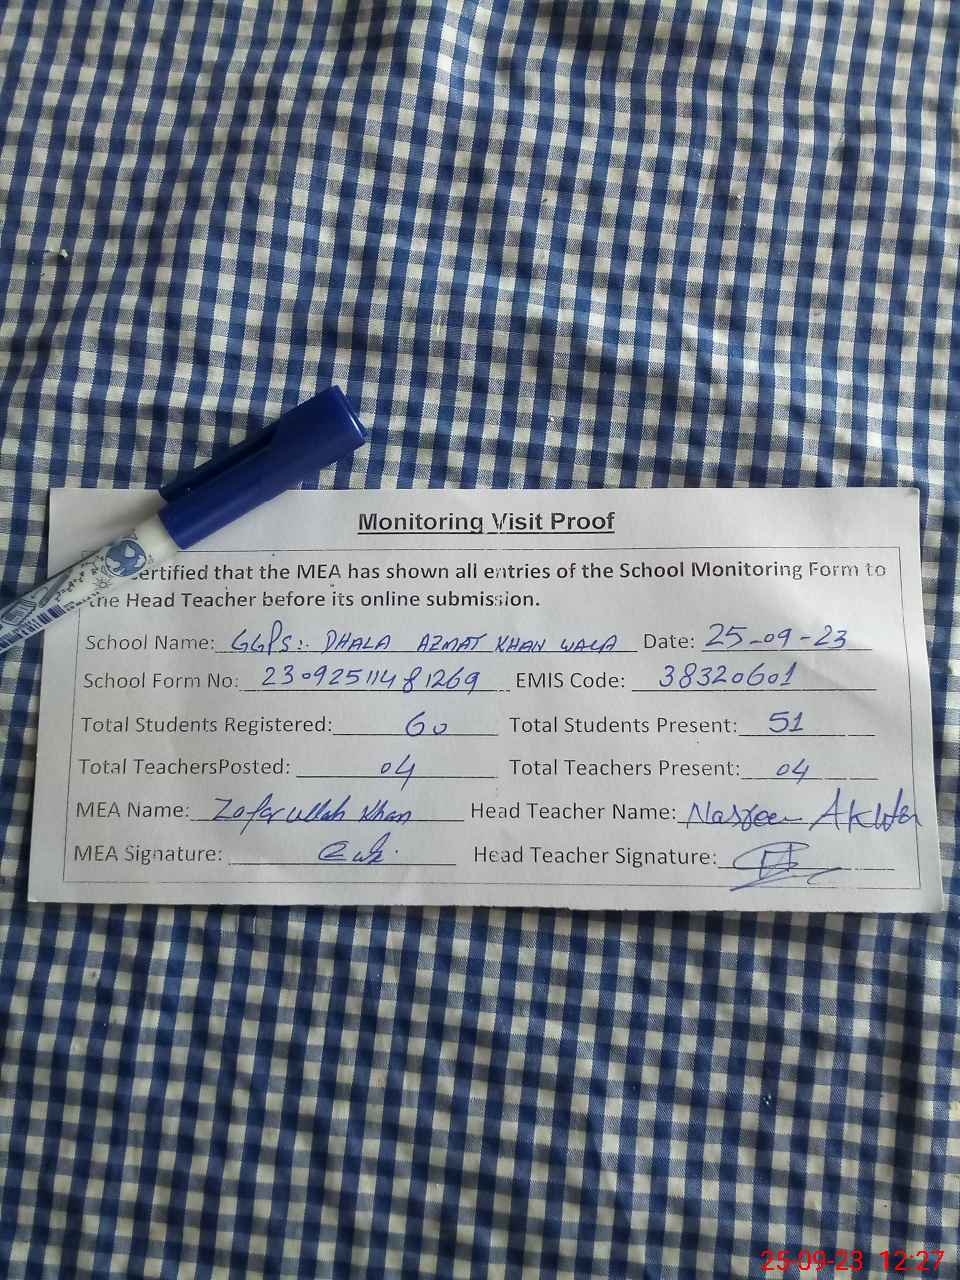 Monitoring Visit Proof
ertified that the MEA has shown all entries of the School Monitoring Form to
the Head Teacher before its online submission.
School Name: GGPS:. DHALA AZMAT KHAN WALA Date: 25-09-23
School Form No: 23092511481269 EMIS Code: 38320601
Total Students Registered: 60 Total Students Present: 51
Total TeachersPosted: 04 Total Teachers Present: 04
MEA Name: Zafar ullah Khan Head Teacher Name: Nasreen Akhter
MEA Signature: Head Teacher Signature:
25-09-23 12:27